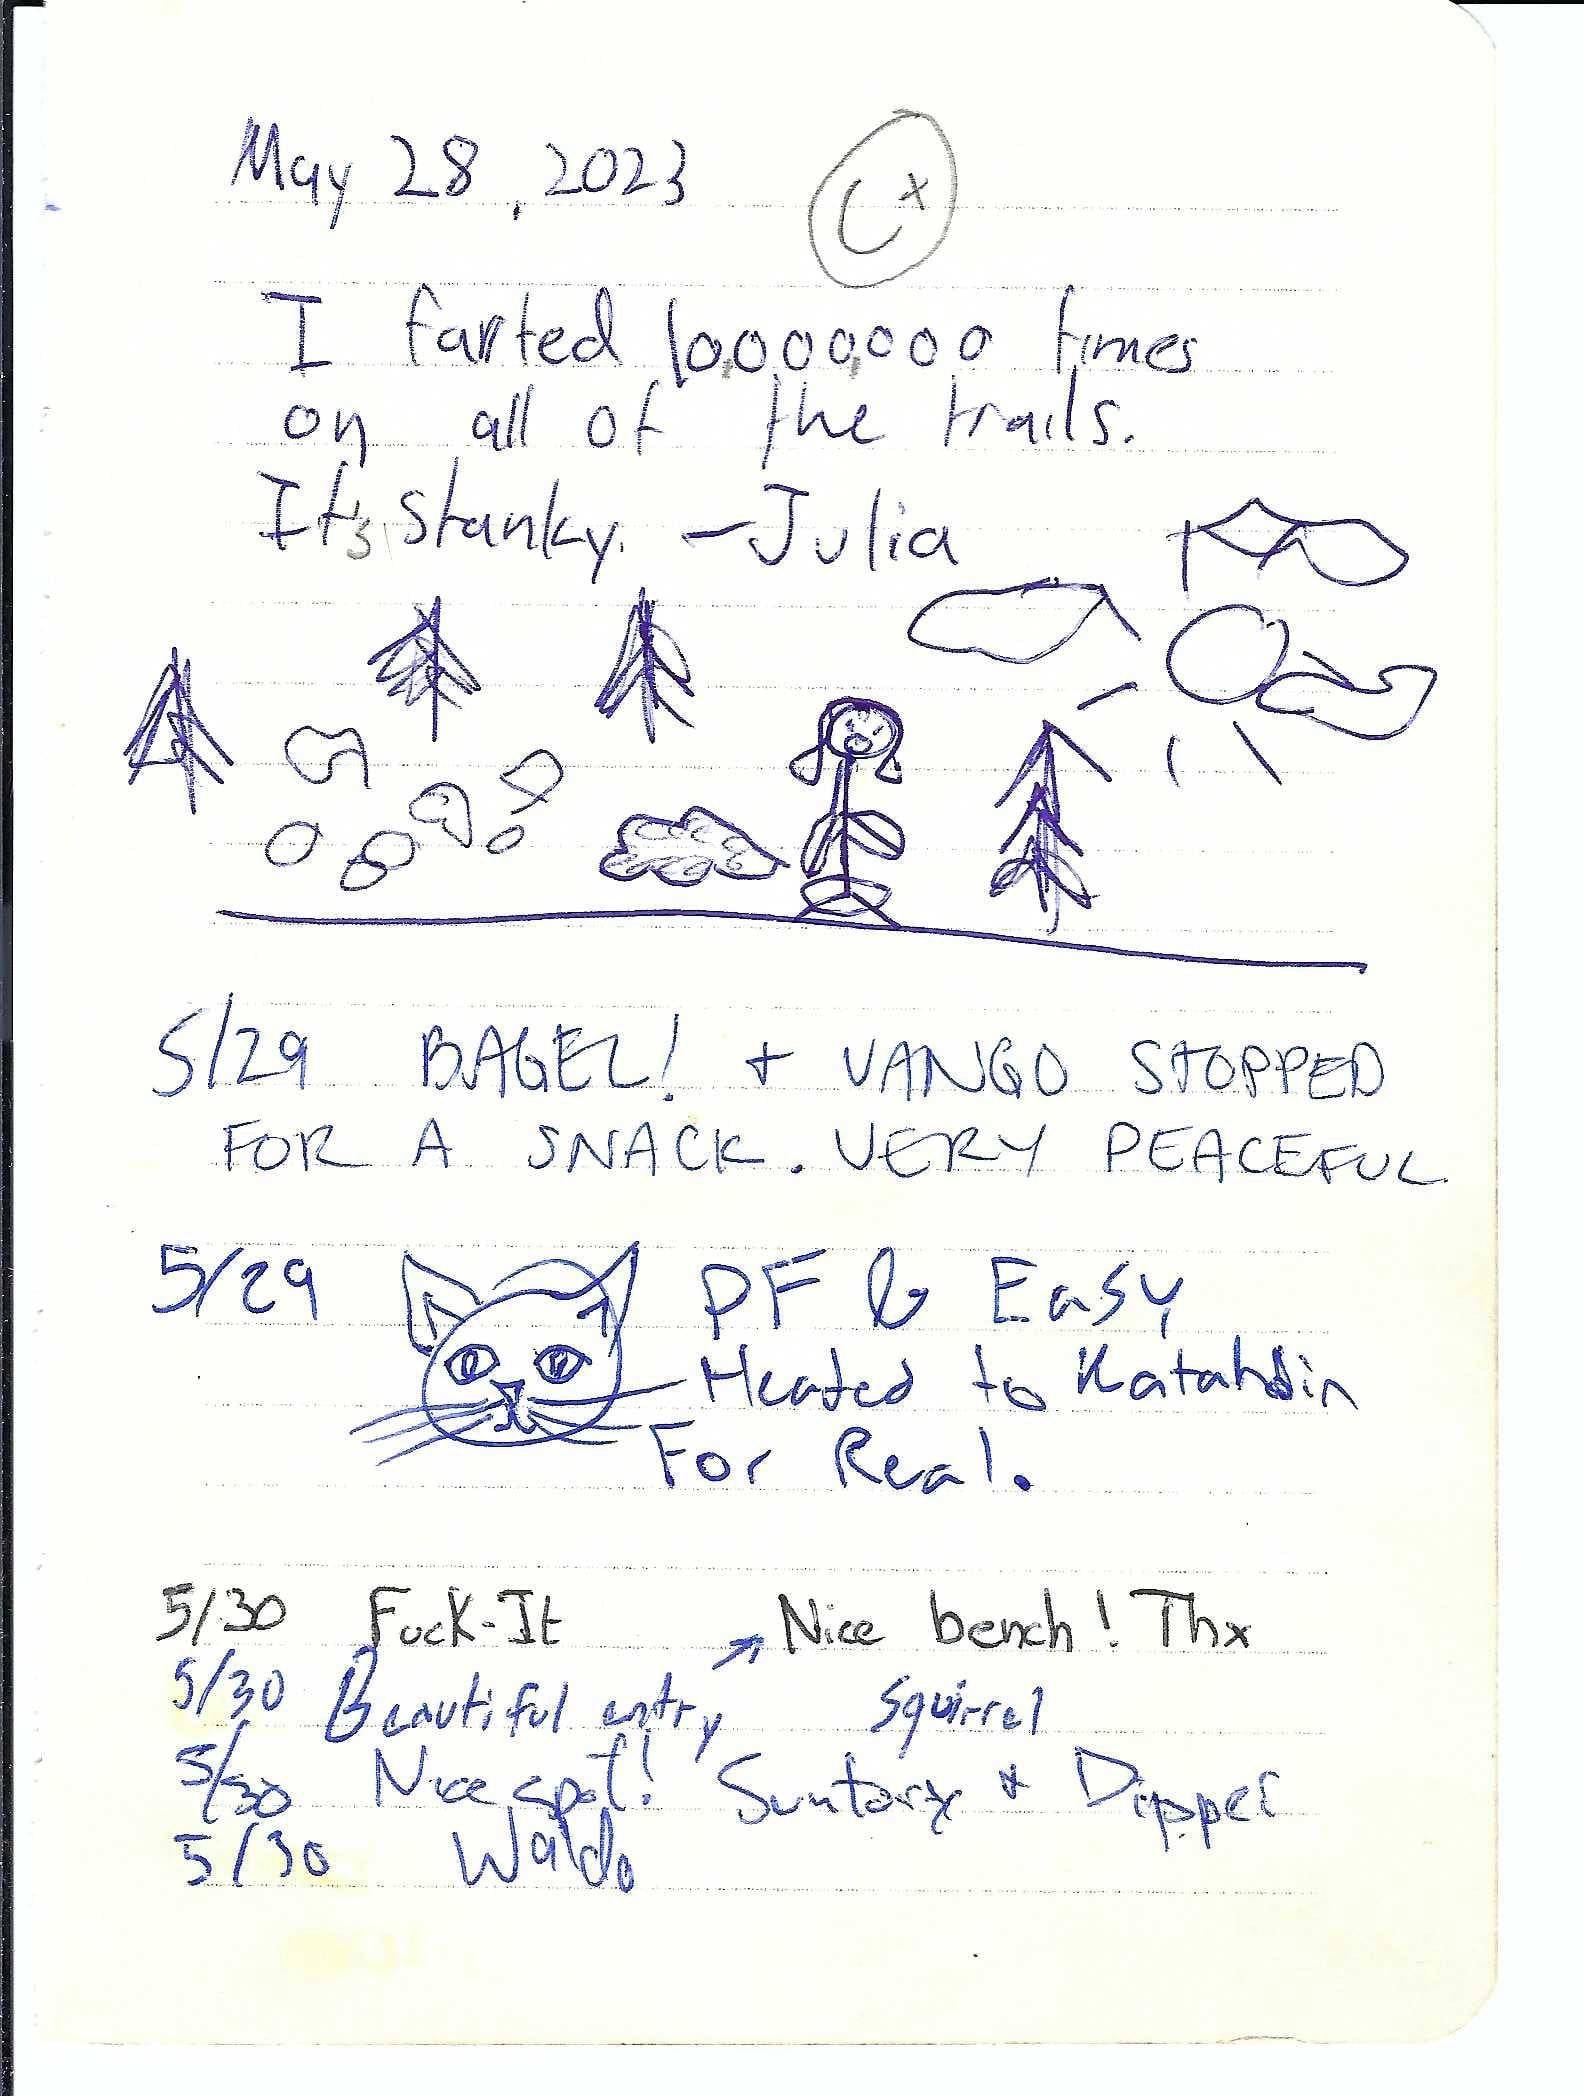 May 28, 2023 C+
I farted 10,000,000 times
on all of the trails.
It's stanky. - Julia
5/29 BAGEL! + VANGO STOPPED
FOR A SNACK. VERY PEACEFUL
5/29 PF & Easy
Heated to Katahdin
For Real.
5/30 Fuck-It Nice bench! Thx
5/30 Beautiful entry ↗ Squirrel
5/30 Nice spot! Suntory & Dipper
5/30 Waldo